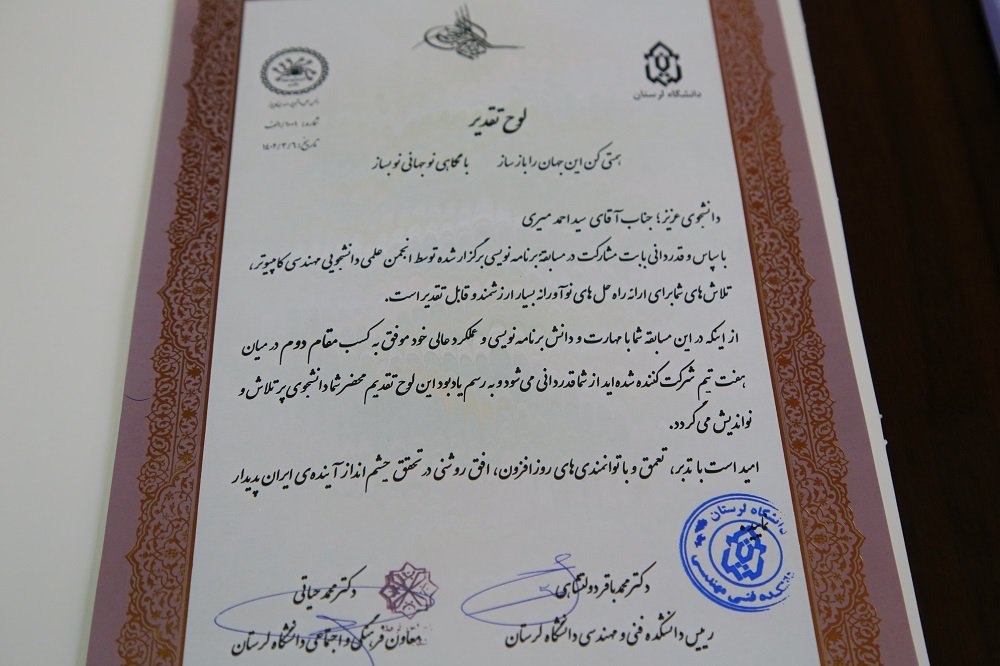 دانشگاه لرستان
شماره: ۱۰۰۱/الف
تاریخ: ۱۴۰۲/۳/۶
لوح تقدیر
همتی کن این جهان را باز ساز    با نگاهی نو جهانی نو بساز
دانشجوی عزیز؛ جناب آقای سید احمد میری
با سپاس و قدردانی بابت مشارکت در مسابقهٔ برنامه نویسی برگزار شده توسط انجمن علمی دانشجویی مهندسی کامپیوتر،
تلاش های شما برای ارائه راه حل های نوآورانه بسیار ارزشمند و قابل تقدیر است.
از اینکه در این مسابقه شما با مهارت و دانش برنامه نویسی و عملکرد عالی خود موفق به کسب مقام دوم در میان
هفت تیم شرکت کننده شده اید از شما قدردانی می شود و به رسم یادبود این لوح تقدیم محضر شما دانشجوی پر تلاش و
نواندیش می گردد.
امید است با تدبر، تعمق و با توانمندی های روز افزون، افق روشنی در تحقق چشم انداز آینده ی ایران پدیدار
نمایید.
دانشگاه لرستان
دانشکده فنی مهندسی
دکتر محمدباقر دولتشاهی
رییس دانشکده فنی و مهندسی دانشگاه لرستان
دکتر محمد حیاتی
معاون فرهنگی و اجتماعی دانشگاه لرستان